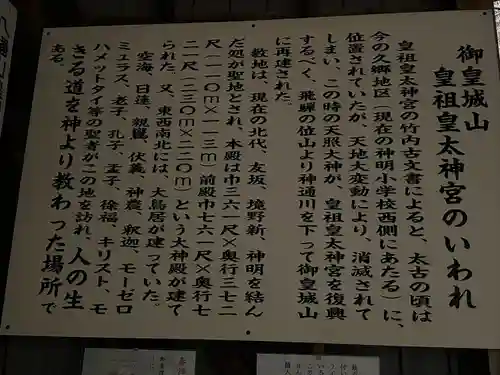 御皇城山
皇祖皇太神宮のいわれ
皇祖皇太神宮の竹内古文書によると、太古の頃は
今の久郷地区（現在の神明小学校西側にあたる）に、
位置されていたが、天地大変動により、消滅されて
しまい、この時の天照大神が、皇祖皇太神宮を復興
するべく、飛騨の位山より神通川を下って御皇城山
に再建された。
敷地は、現在の北代、友坂、境野新、神明を結ん
だ処が聖地とされ、本殿は巾三六一尺×奥行三七二
尺（一一〇×一一三m）前殿巾七六一尺×奥行七
二一尺（二三〇×二二〇m）という大神殿が建て
られた。又、東西南北には、大鳥居が建っていた。
空海、日蓮、親鸞、伏義、神農、釈迦、モーゼロ
ミュラス、老子、孔子、孟子、徐福、キリスト、モ
ハメットタイ等の聖者がこの地を訪れ、人の生
きる道を神より教わった場所で
ある。